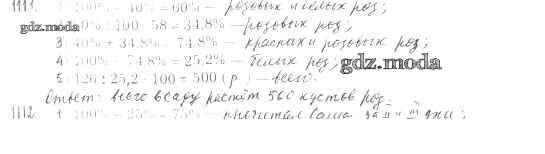 1111. 1. 100% - 40% = 60% — розовых и белых роз;
gdz.moda 60% : 100 · 58 = 34,8% — розовых роз;
3. 40% + 34,8% = 74,8% — красных и розовых роз;
4. 100% - 74,8% = 25,2% — белых роз; gdz.moda
5. 126 : 25,2 · 100 = 500 (р.) — всего.
Ответ: всего в саду растёт 500 кустов роз.
1112. 1. 100% - 25% = 75% — прочитал Саша за II и III дни;